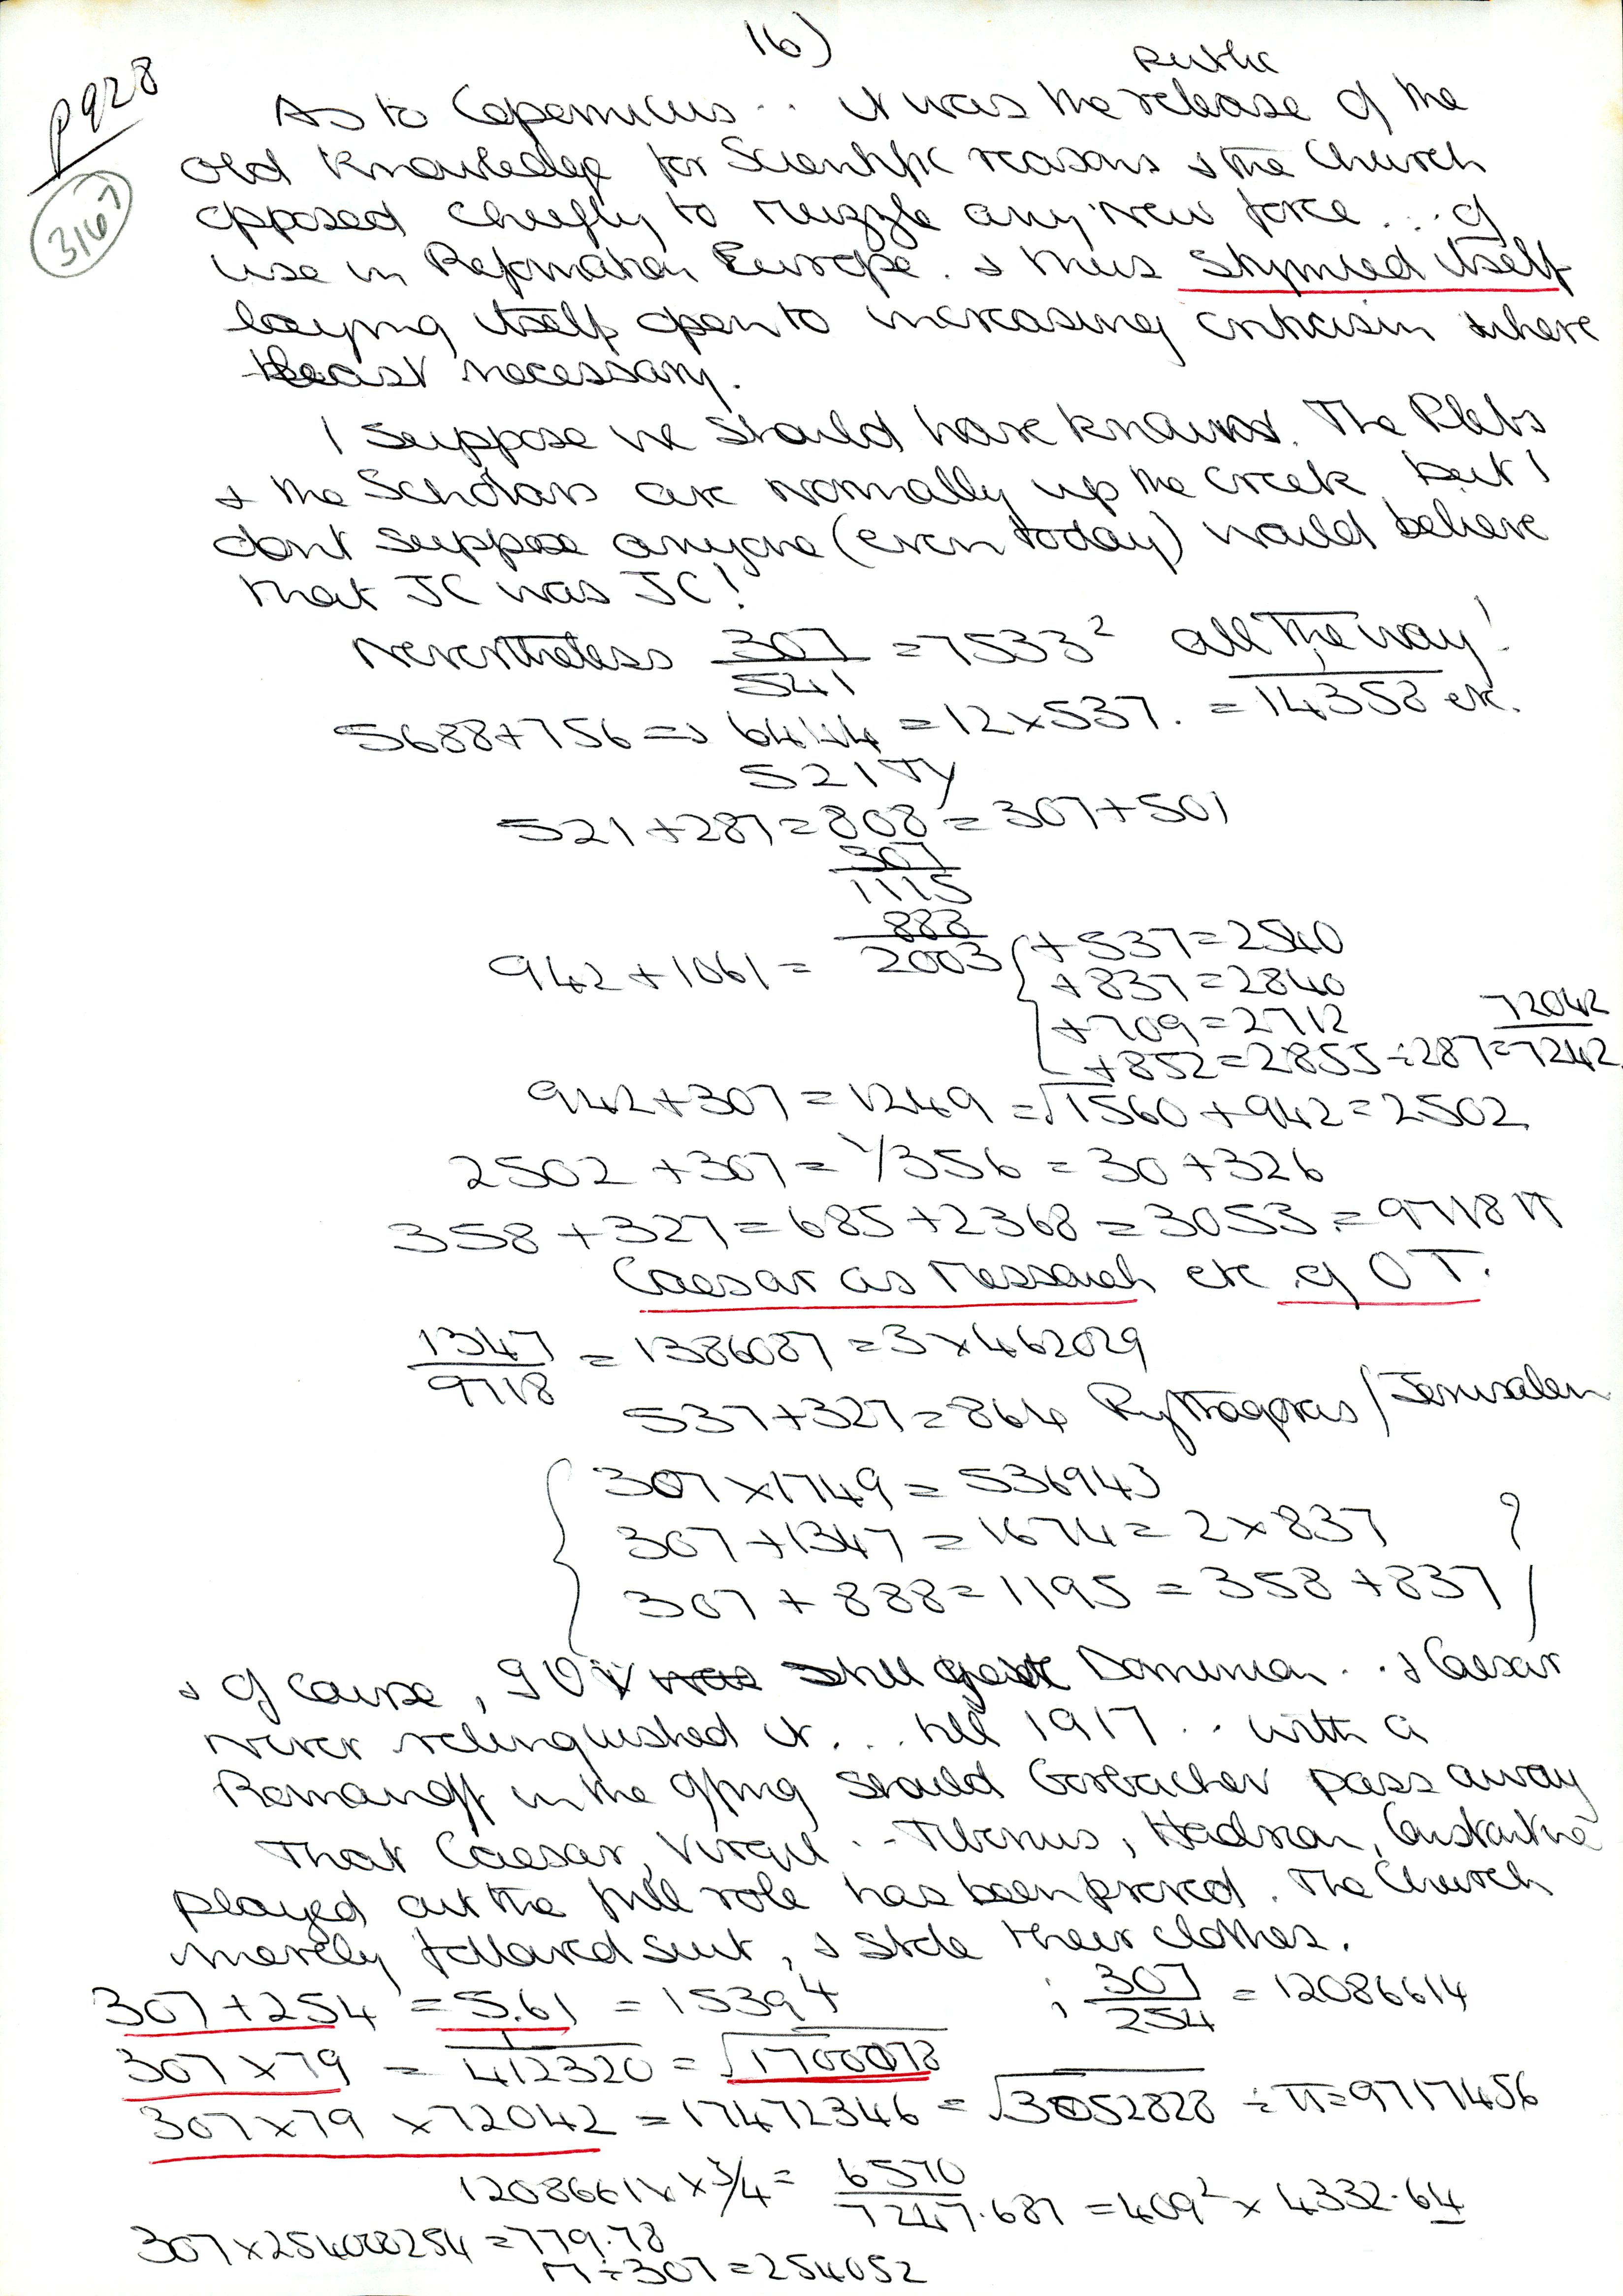 16)
P928
3167
Public
As to Copernicus .. it was the release of the
old knowledge for Scientific reasons & the Church
opposed chiefly to muzzle any new force ... of
use in Reformation Europe. & thus stymied itself
laying itself open to increasing criticism where
least necessary.
I suppose we should have known. The Plebs
& the Scholars are normally up the creek but I
dont suppose anyone (even today) would believe
that JC was JC!
Nevertheless 307/541 = 7533² all the way!
5688+756 => 6444 = 12×537. = 14358 etc.
521 TY
521+287=808=307+501
307
1115
888
942+1061= 2003 { +537=2540
+837=2840
+709=2712
72042
+852=2855÷287=7242
942+307=1249=√1560+942=2502
2502+307=1/356=30+326
358+327=685+2368=3053.=9718π
Caesar as Messaiah etc of OT.
1347/9718 = 1386087=3×462029
537+327=864 Pythagoras/Jerusalem
307×1749=536943
307+1347=1674=2×837 ?
307+888=1195=358+837
& Of Cause, 901 still get Dominion .. & Caesar
never relinquished it ... till 1917 .. with a
Romanoff in the offing should Gorbachev pass away
That Caesar, Virgil .. Tiberius, Hadrian, Constantine
played out the full role has been proved. The Church
merely followed suit, & stole their clothes.
307+254=5.61=1539⁴ ; 307/254=12086614
307×79 = 1/412320=√1700078
307×79×72042=17472346=√3052828÷π=9717456
1208661××3/4=6570/7247.687=409²×4332.64
307×254000254=779.78
π÷307=254052